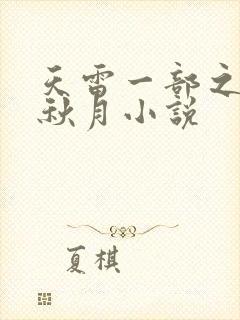 天雷一部之
秋月小說
夏棋